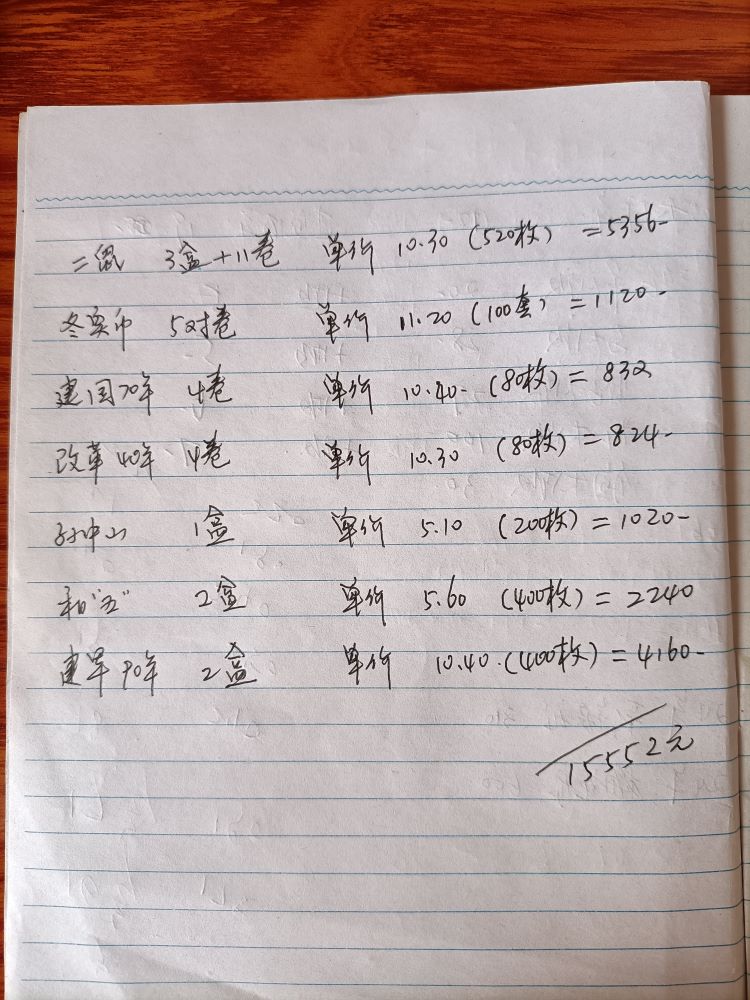 二鼠 3盒+11卷 单价 10.30 (520枚) =5356-
冬奥币 5对卷 单价 11.20 (100套) =1120-
建国70年 4卷 单价 10.40- (80枚) = 832
改革40年 4卷 单价 10.30 (80枚) = 824-
孙中山 1盒 单价 5.10 (200枚) = 1020-
和"五" 2盒 单价 5.60 (400枚) = 2240
建军90年 2盒 单价 10.40. (400枚) = 4160-
15552元